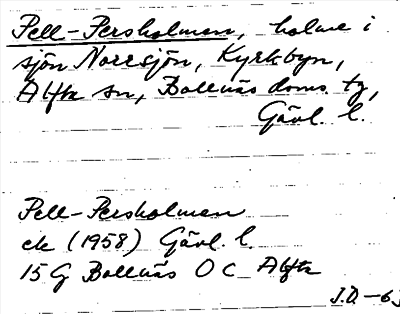 Pell-Persholmen, holme i
sjön Norrsjön, Kyrkbyn,
Alfta sn, Bollnäs doms. tg,
Gävl. l.
Pell-Persholmen
ek (1958) Gävl. l.
15 G Bollnäs O C Alfta
J.D. -63